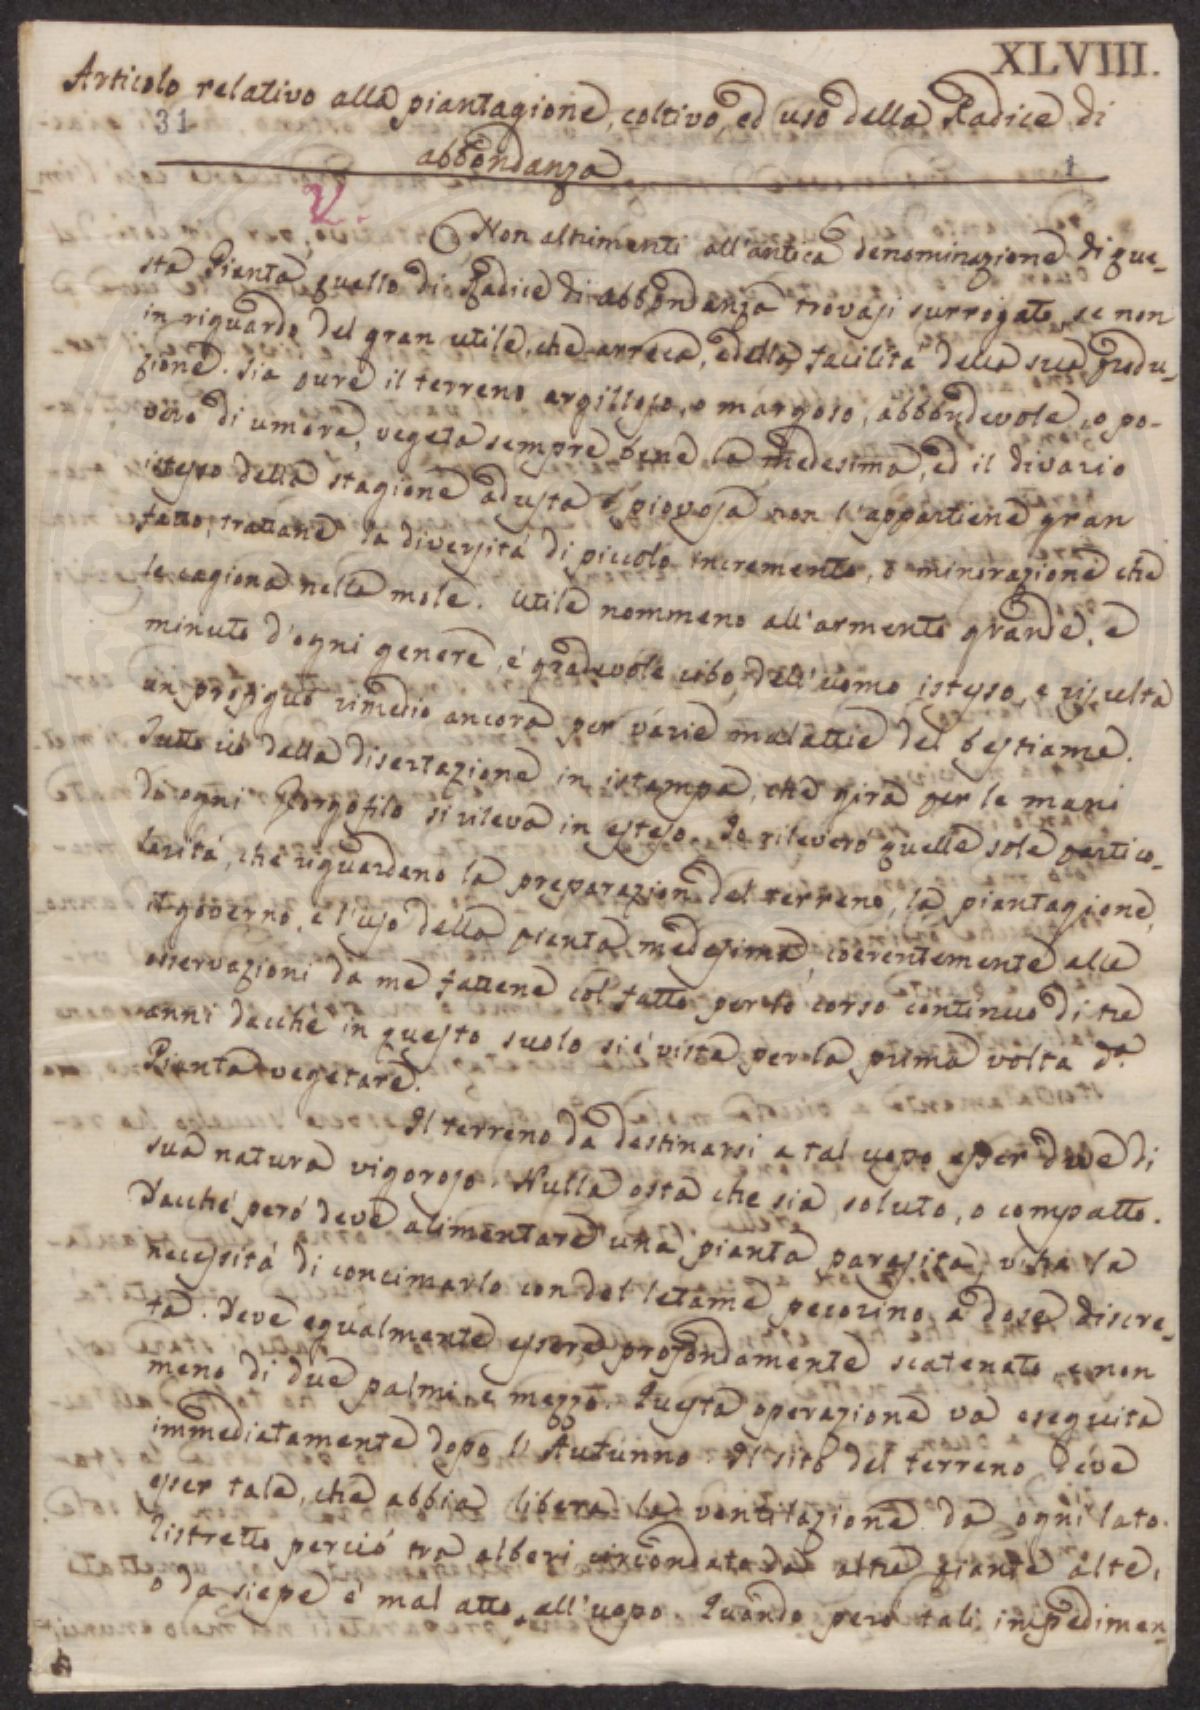 XLVIII.
Articolo relativo alla piantagione, coltivo, ed uso della Radice di
31
abbondanza
1
V.
Non altrimenti all'antica denominazione di que-
sta Pianta quello di Radice di abbondanza trovasi surrogato, se non
in riguardo del gran utile, che arreca, e della facilità della sua produ-
zione. Sia pure il terreno argilloso, o margoso, abbondevole, o po-
vero di umore, vegeta sempre bene la medesima, ed il divario
istesso della stagione adusta o piovosa non l'appartiene gran
fatto, trattane la diversità di piccolo incremento, o minorazione che
le cagiona nella mole. Utile nommeno all'armento grande, e
minuto d'ogni genere, è gradevole cibo dell'uomo istesso, e risulta
un proficuo rimedio ancora per varie malattie del bestiame.
Tutto ciò dalla disertazione in istampa, che gira per le mani
di ogni Georgofilo si rileva in esteso. Io rileverò quelle sole partico-
larità, che riguardano la preparazion del terreno, la piantagione,
il governo, e l'uso della pianta medesima, coerentemente alle
osservazioni da me fattene col fatto per lo corso continuo di tre
anni dacchè in questo suolo si è vista per la prima volta d.a
Pianta vegetare.
Il terreno da destinarsi a tal uopo esser deve di
sua natura vigoroso. Nulla osta che sia soluto, o compatto.
Dacchè però deve alimentare una pianta parasita, v'ha la
necessità di concimarlo con del letame pecorino a dose discre-
ta. Deve egualmente essere profondamente scatenato, e non
meno di due palmi e mezzo. Questa operazione va eseguita
immediatamente dopo l'Autunno. Il sito del terreno deve
esser tale, che abbia libera la ventilazione da ogni lato.
Ristretto perciò tra alberi circondato da altre piante alte,
o da siepe è mal atto all'uopo. Quando però tali impedimen-